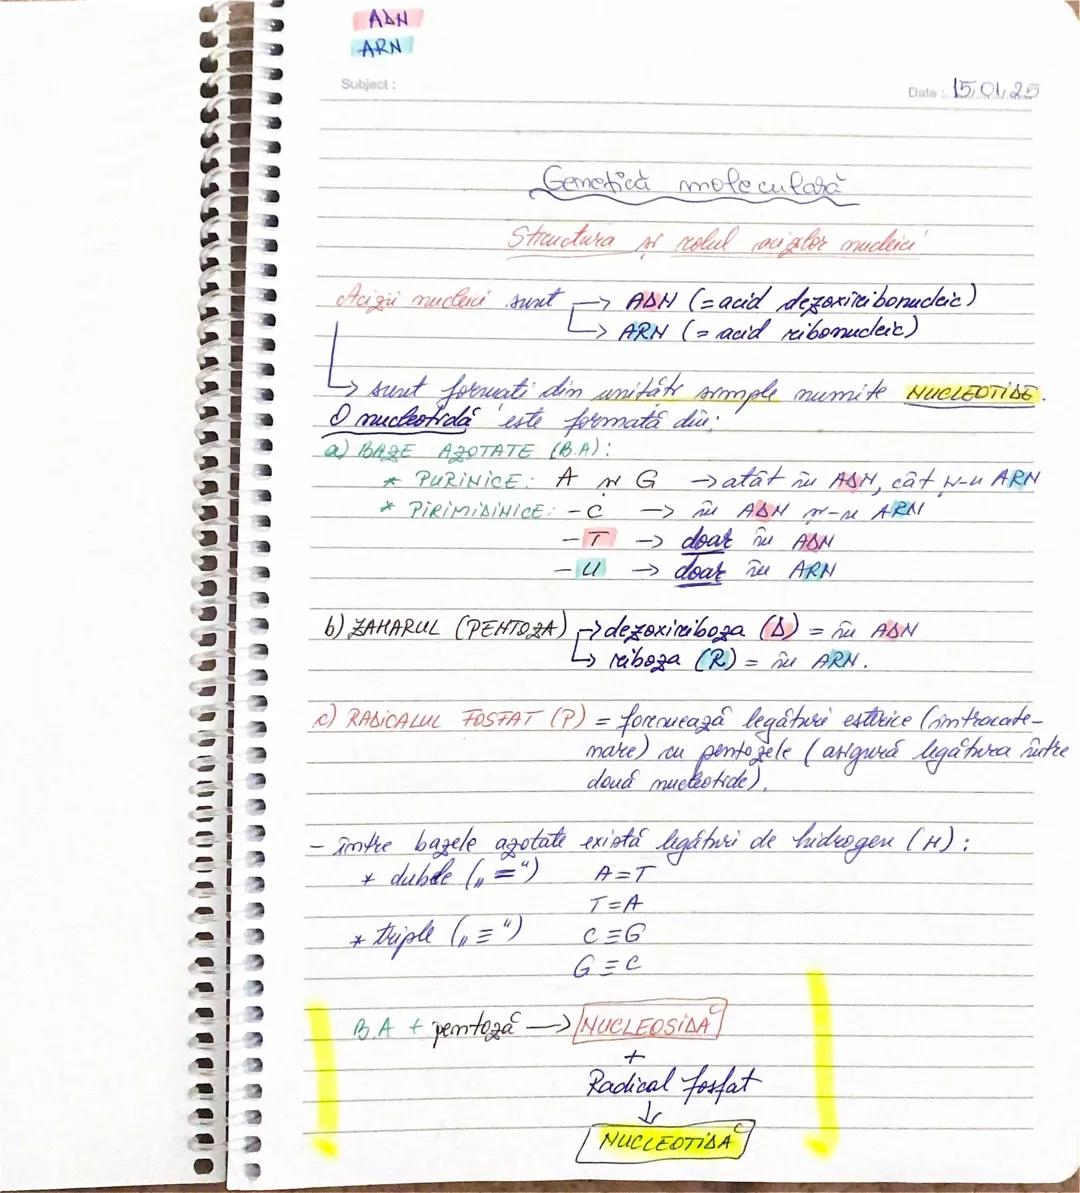 ADN
ARN
Subject :
Date : 15.01.25
Genetică moleculară
Structura și rolul acizilor nucleici
Acizii nucleici sunt → ADN (= acid dezoxiribonucleic)
→ ARN (= acid ribonucleic)
→ sunt formați din unități simple numite NUCLEOTIDE.
O nucleotidă este formată din:
a) BAZE AZOTATE (B.A):
* PURINICE: A și G → atât în ADN, cât și-n ARN
* PIRIMIDINICE: - C → în ADN și-n ARN
- T → doar în ADN
- U → doar în ARN
b) ZAHARUL (PENTOZA) → dezoxiriboza (D) = în ADN
→ riboza (R) = în ARN.
c) RADICALUL FOSFAT (P) = formează legături esterice (intracate-
nare) cu pentozele (asigură legătura între
două nucleotide).
- între bazele azotate există legături de hidrogen (H):
* duble („=“) A=T
T=A
* triple („≡“) C≡G
G≡C
B.A + pentoză → NUCLEOSIDĂ
+
Radical fosfat
↓
NUCLEOTIDĂ